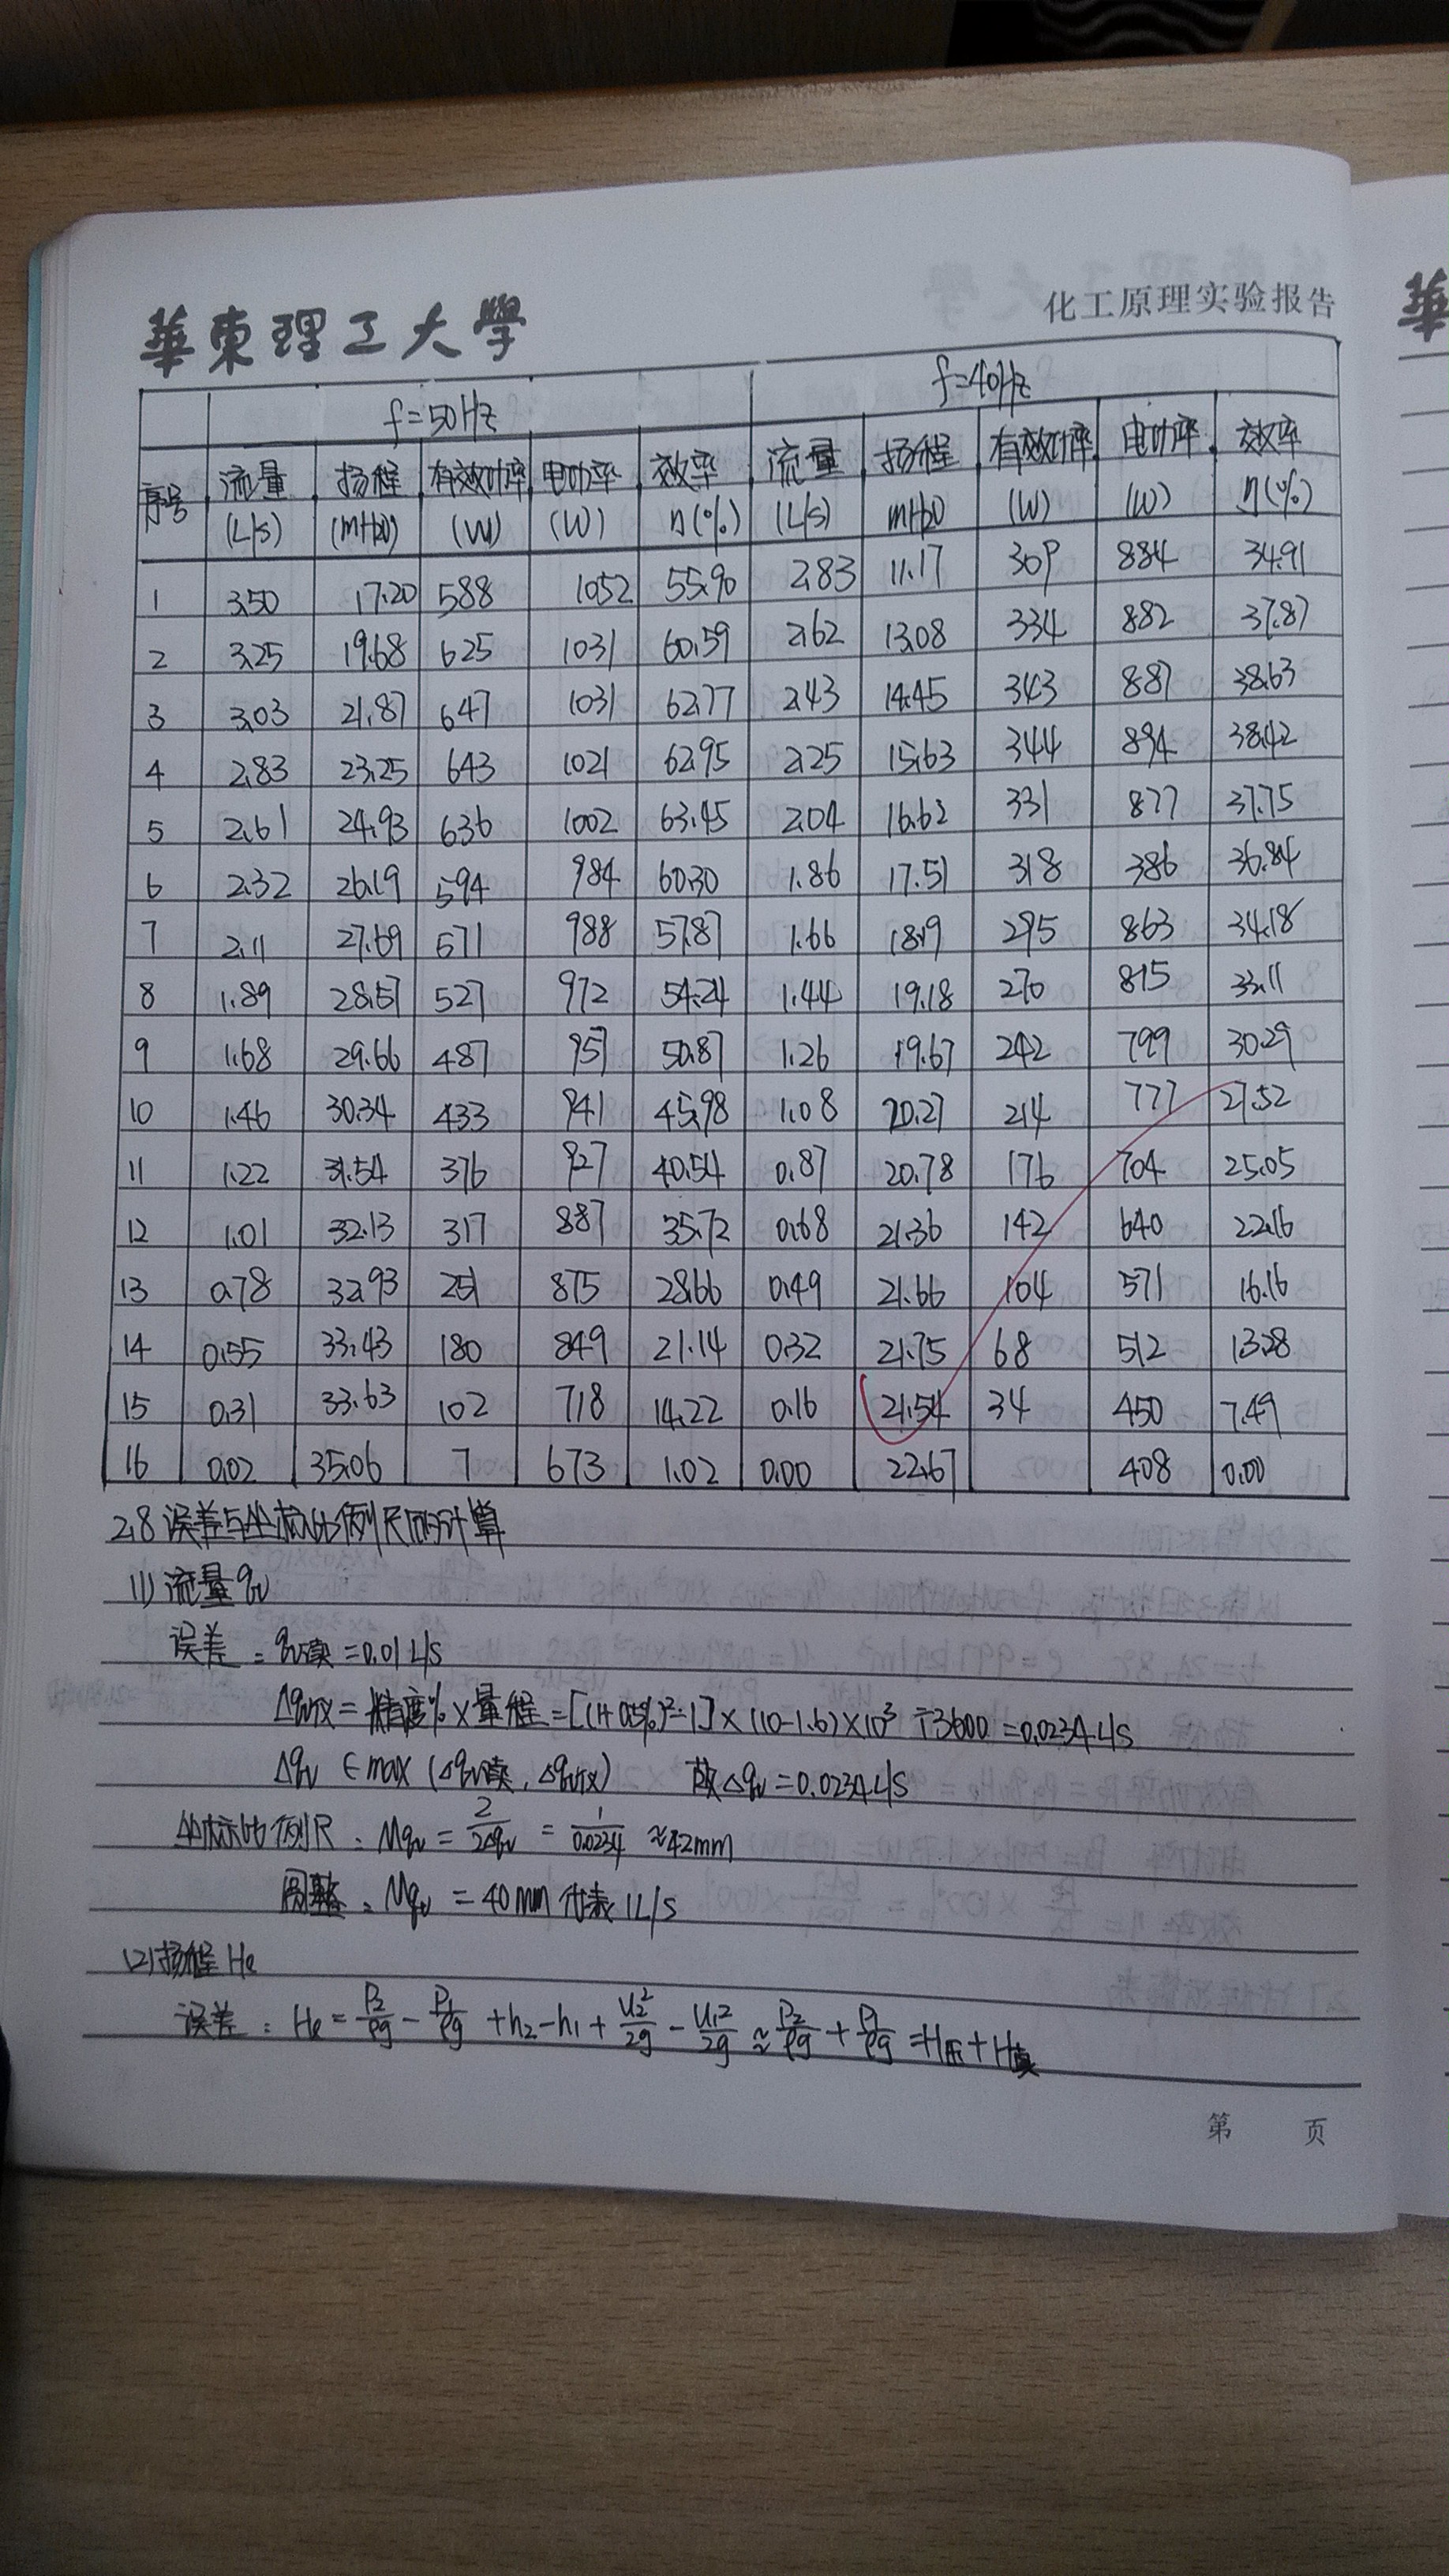 華東理工大學
化工原理实验报告
f=50Hz f=40Hz
序号 流量 扬程 有效功率 电功率 效率 流量 扬程 有效功率 电功率 效率
(L/s) (mH2O) (W) (W) η(%) (L/s) mH2O (W) (W) η(%)
1 3.50 17.20 588 1052 55.90 2.83 11.17 309 884 34.91
2 3.25 19.68 625 1031 60.59 2.62 13.08 334 882 37.87
3 3.03 21.87 647 1031 62.77 2.43 14.45 343 887 38.63
4 2.83 23.25 643 1021 62.95 2.25 15.63 344 894 38.42
5 2.61 24.93 636 1002 63.45 2.04 16.62 331 877 37.75
6 2.32 26.19 594 984 60.30 1.86 17.51 318 386 36.84
7 2.11 27.69 571 988 57.87 1.66 18.19 295 863 34.18
8 1.89 28.57 527 972 54.24 1.44 19.18 270 815 33.11
9 1.68 29.66 487 957 50.87 1.26 19.67 242 799 30.29
10 1.46 30.34 433 941 45.98 1.08 20.27 214 777 27.52
11 1.22 31.54 376 927 40.54 0.87 20.78 176 704 25.05
12 1.01 32.13 317 887 35.72 0.68 21.36 142 640 22.16
13 0.78 32.93 251 875 28.66 0.49 21.66 104 571 16.16
14 0.55 33.43 180 849 21.14 0.32 21.75 68 512 13.28
15 0.31 33.63 102 718 14.22 0.16 21.54 34 450 7.49
16 0.02 35.06 7 673 1.02 0.00 22.67 408 0.00
2.8 误差与坐标比例尺的计算
(1) 流量qv
误差: qv读=0.01 L/s
Δqv仪=精度%×量程=[(1+0.5%)²-1]×(10-1.6)×10³÷3600=0.0234L/s
Δqv ∈ max (Δqv读, Δqv仪) 故Δqv=0.0234L/s
坐标比例尺: Mqv = 2/2Δqv = 1/0.0234 ≈42mm
圆整: Mqv = 40mm代表1L/s
(2)扬程He
误差: He = P2/ρg - P1/ρg + h2-h1 + u2²/2g - u1²/2g ≈ P2/ρg + P1/ρg = H压+H真
第 页